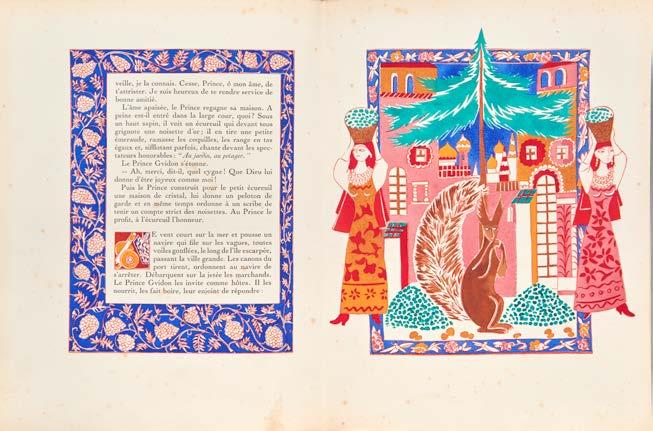 veille, je la connais. Cesse, Prince, ô mon âme, de
t'attrister. Je suis heureux de te rendre service de
bonne amitié.
L'âme apaisée, le Prince regagne sa maison. A
peine est-il entré dans la large cour, quoi? Sous
un haut sapin, il voit un écureuil qui devant tous
grignote une noisette d'or; il en tire une petite
émeraude, ramasse les coquilles, les range en tas
égaux et, sifflotant parfois, chante devant les spec-
tateurs honorables: "Au jardin, au potager."
Le Prince Gvidon s'étonne.
— Ah, merci, dit-il, quel cygne! Que Dieu lui
donne d'être joyeux comme moi!
Puis le Prince construit pour le petit écureuil
une maison de cristal, lui donne un peloton de
garde et en même temps ordonne à un scribe de
tenir un compte strict des noisettes. Au Prince le
profit, à l'écureuil l'honneur.
LE vent court sur la mer et pousse un
navire qui file sur les vagues, toutes
voiles gonflées, le long de l'île escarpée,
passant la ville grande. Les canons du
port tirent, ordonnent au navire de
s'arrêter. Débarquent sur la jetée les marchands.
Le Prince Gvidon les invite comme hôtes. Il les
nourrit, les fait boire, leur enjoint de répondre: